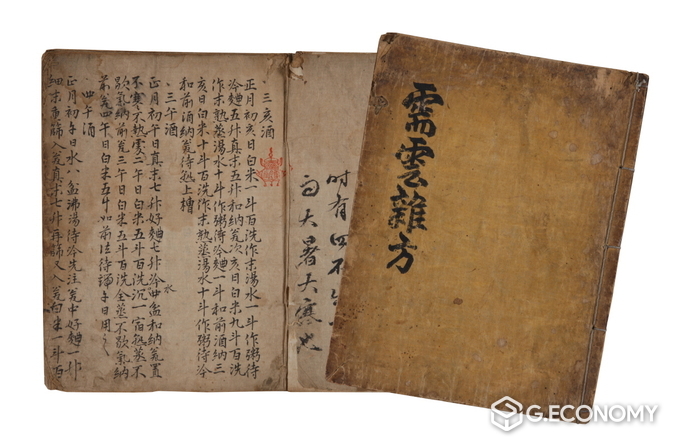 需雲雜方
大暑大寒
三亥酒
正月初亥日白米一斗百洗作末湯水一斗作粥待
冷麵五升真末五升和納瓮次亥日白米九斗百洗
作末熟蒸湯水十斗作粥待冷麵一斗和前酒納三
亥日白米十斗百洗作末熟蒸湯水十斗作粥待冷
和前酒納瓮待熟上槽
三午酒
正月初午日真末七升好麵七升冷水四盆和納瓮置
不寒不熱處二午日白米五斗百洗沉一宿熟蒸不
歇氣納前瓮三午日白米五斗百洗全蒸不歇氣納
前瓮四午日白米五斗如前法待端午日用之
四午酒
正月初午日水八盆沸湯待冷先注瓮中好麵一升
細末多篩入瓮真末七升再篩又入瓮白米一斗百
G.ECONOMY